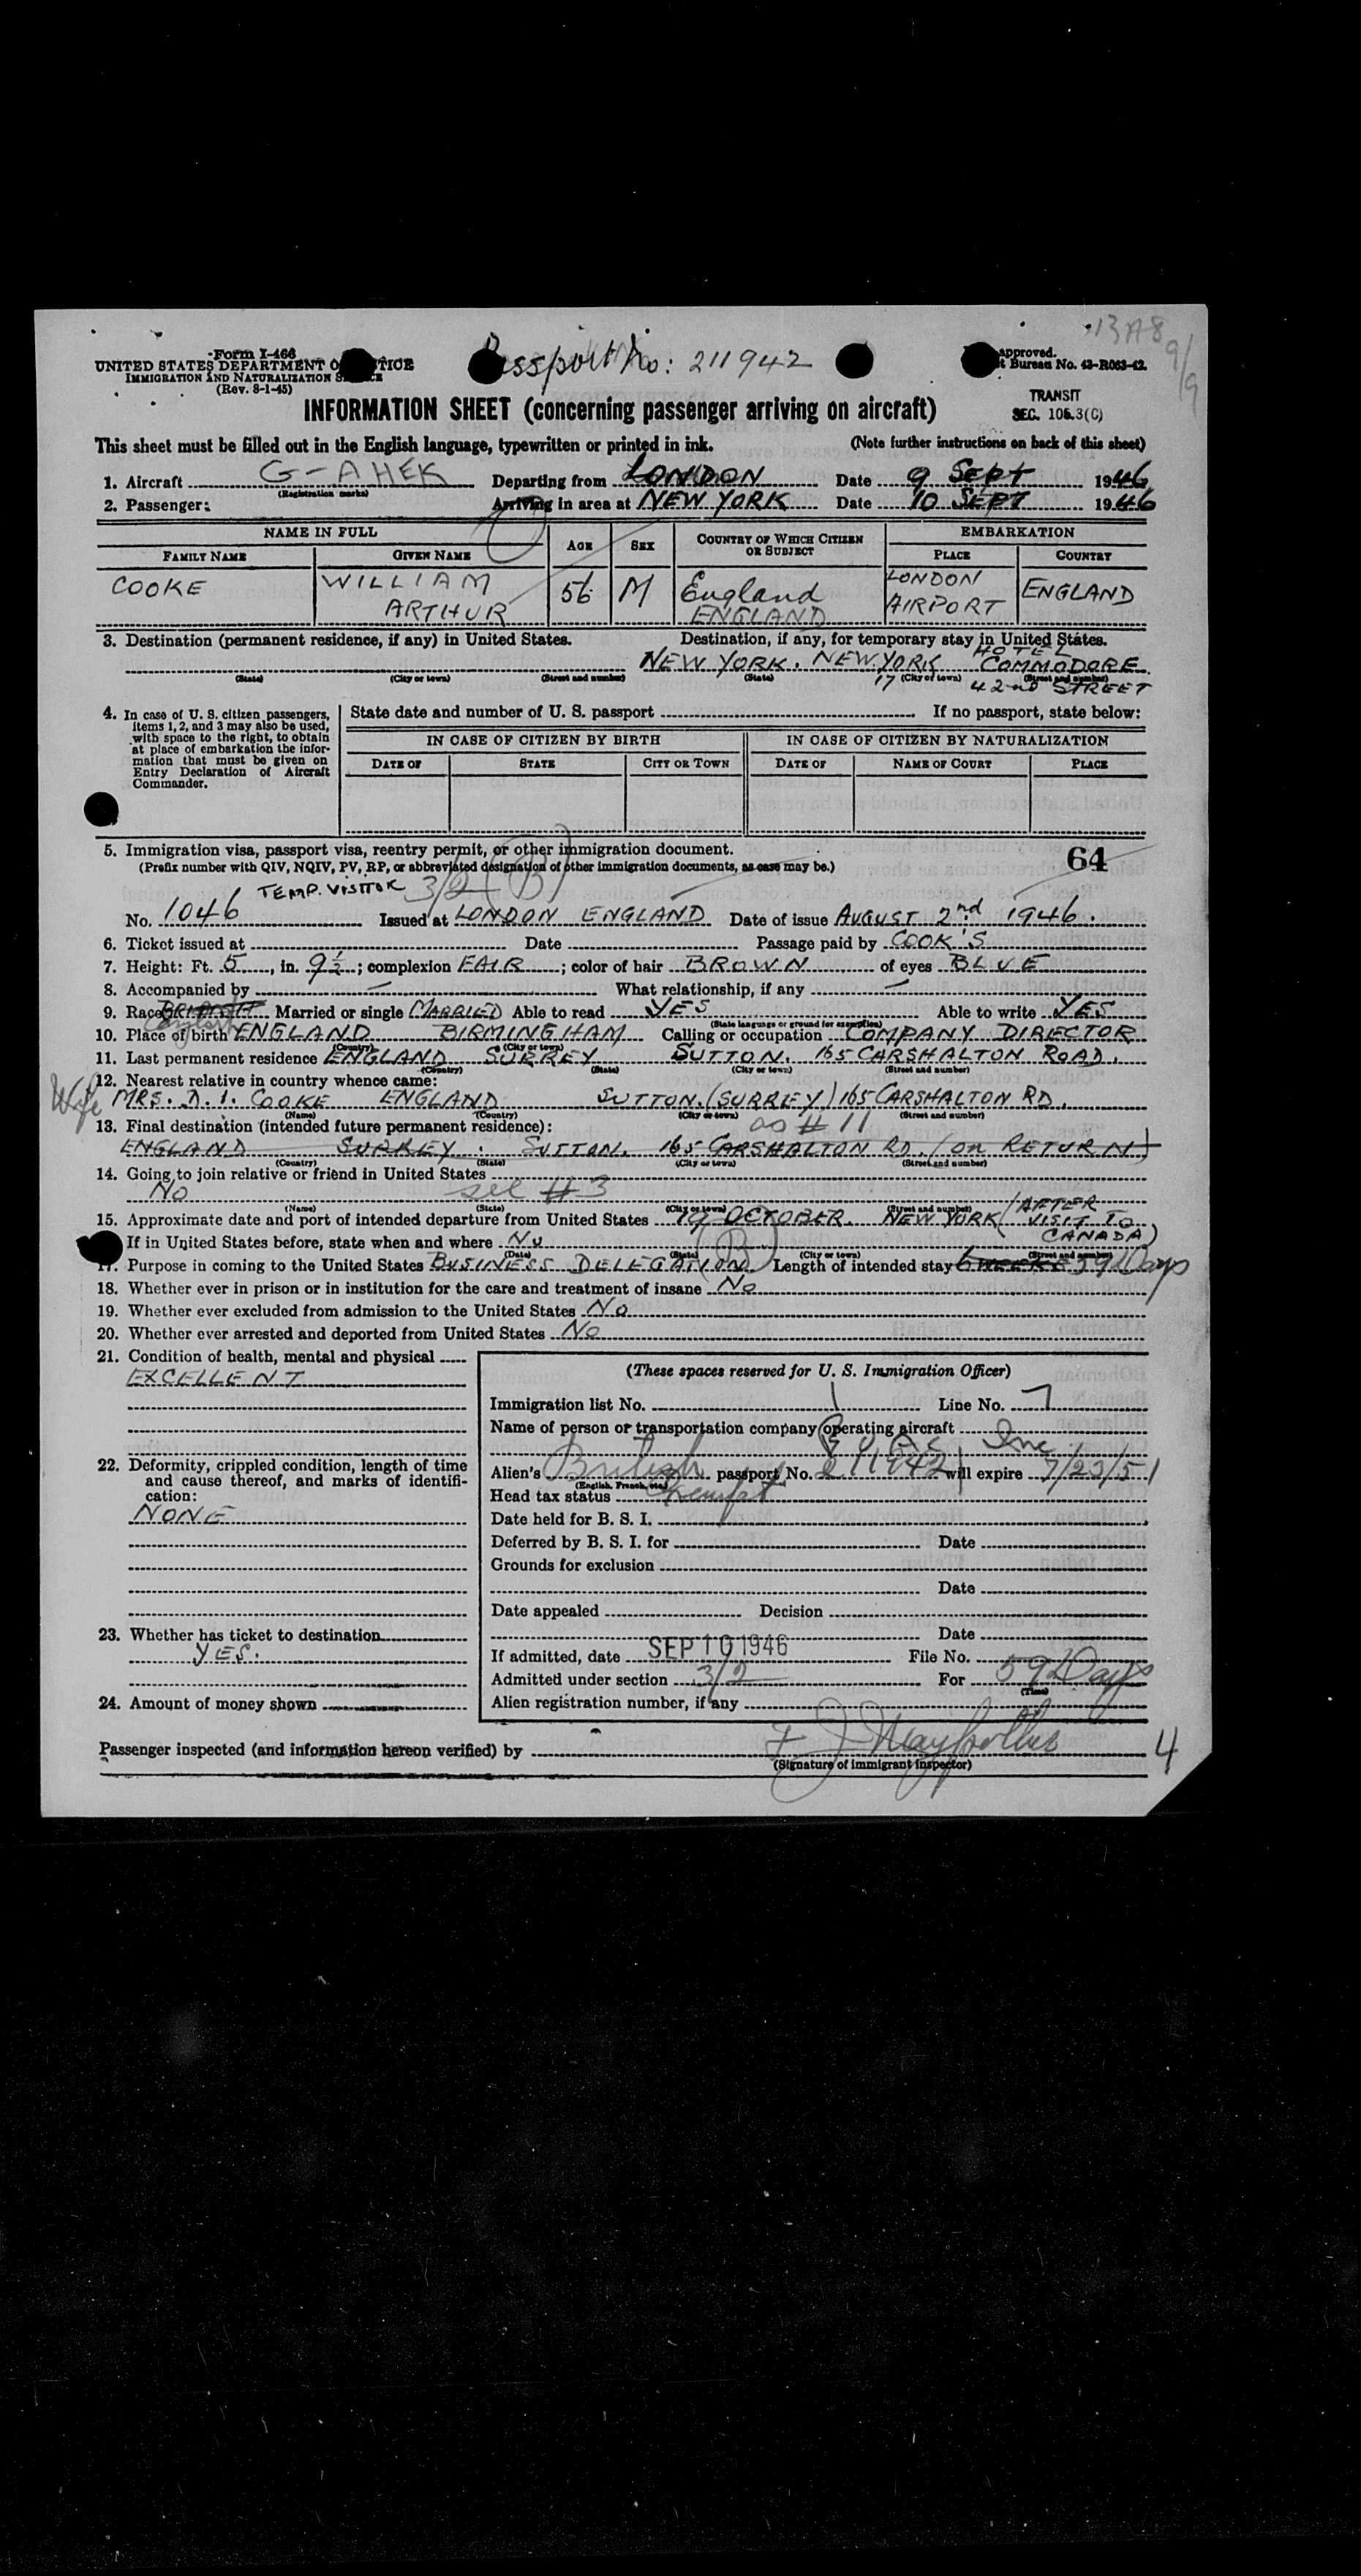 13A8
9/9
Form I-466
UNITED STATES DEPARTMENT OF JUSTICE
IMMIGRATION AND NATURALIZATION SERVICE
(Rev. 8-1-45)
Passport No: 211942
approved.
Bureau No. 43-R063-42.
TRANSIT
SEC. 105.3(C)
INFORMATION SHEET (concerning passenger arriving on aircraft)
This sheet must be filled out in the English language, typewritten or printed in ink. (Note further instructions on back of this sheet)
1. Aircraft G-AHEK Departing from LONDON Date 9 SEPT 1946
(Registration marks)
2. Passenger: Arriving in area at NEW YORK Date 10 SEPT 1946
NAME IN FULL AGE SEX COUNTRY OF WHICH CITIZEN OR SUBJECT EMBARKATION
FAMILY NAME GIVEN NAME PLACE COUNTRY
COOKE WILLIAM ARTHUR 56 M England ENGLAND LONDON AIRPORT ENGLAND
3. Destination (permanent residence, if any) in United States. Destination, if any, for temporary stay in United States.
NEW YORK. NEW YORK HOTEL COMMODORE
(State) (City or town) (Street and number) (State) 17 (City or town) (Street and number) 42nd STREET
4. In case of U. S. citizen passengers, items 1, 2, and 3 may also be used, with space to the right, to obtain at place of embarkation the information that must be given on Entry Declaration of Aircraft Commander.
State date and number of U. S. passport If no passport, state below:
IN CASE OF CITIZEN BY BIRTH IN CASE OF CITIZEN BY NATURALIZATION
DATE OF STATE CITY OR TOWN DATE OF NAME OF COURT PLACE
5. Immigration visa, passport visa, reentry permit, or other immigration document. 64
(Prefix number with QIV, NQIV, PV, RP, or abbreviated designation of other immigration documents, as case may be.)
TEMP. VISITOR 3/2 (B)
No. 1046 Issued at LONDON ENGLAND Date of issue AUGUST 2nd 1946.
6. Ticket issued at Date Passage paid by COOK'S
7. Height: Ft. 5, in. 9½; complexion FAIR; color of hair BROWN of eyes BLUE
8. Accompanied by — What relationship, if any —
9. Race BRITISH English Married or single MARRIED Able to read YES Able to write YES
(State language or ground for exemption)
10. Place of birth ENGLAND BIRMINGHAM Calling or occupation COMPANY DIRECTOR
(Country) (City or town)
11. Last permanent residence ENGLAND SURREY SUTTON. 165 CARSHALTON ROAD.
(Country) (State) (City or town) (Street and number)
12. Nearest relative in country whence came:
Wife MRS. D. I. COOKE ENGLAND SUTTON. (SURREY) 165 CARSHALTON RD.
(Name) (Country) (City or town) (Street and number)
13. Final destination (intended future permanent residence): as # 11
ENGLAND SURREY. SUTTON. 165 CARSHALTON RD. (on RETURN)
(Country) (State) (City or town) (Street and number)
14. Going to join relative or friend in United States
No see # 3
(Name) (State) (City or town) (Street and number)
15. Approximate date and port of intended departure from United States 19 OCTOBER. NEW YORK (AFTER VISIT TO CANADA)
If in United States before, state when and where No (B)
(Date) (State) (City or town) (Street and number)
17. Purpose in coming to the United States BUSINESS DELEGATION Length of intended stay 6 WEEKS 59 Days
18. Whether ever in prison or in institution for the care and treatment of insane No
19. Whether ever excluded from admission to the United States No
20. Whether ever arrested and deported from United States No
21. Condition of health, mental and physical
EXCELLENT
22. Deformity, crippled condition, length of time and cause thereof, and marks of identification:
NONE
23. Whether has ticket to destination
YES.
24. Amount of money shown
(These spaces reserved for U. S. Immigration Officer)
Immigration list No. 1 Line No. 7
Name of person or transportation company operating aircraft
Inc
Alien's British passport No. 211942 will expire 7/23/51
(English, French, etc.)
Head tax status Exempt
Date held for B. S. I.
Deferred by B. S. I. for Date
Grounds for exclusion
Date
Date appealed Decision
Date
If admitted, date SEP 10 1946 File No.
Admitted under section 3/2 For 59 Days
(Time)
Alien registration number, if any
Passenger inspected (and information hereon verified) by
(Signature of immigrant inspector)
4